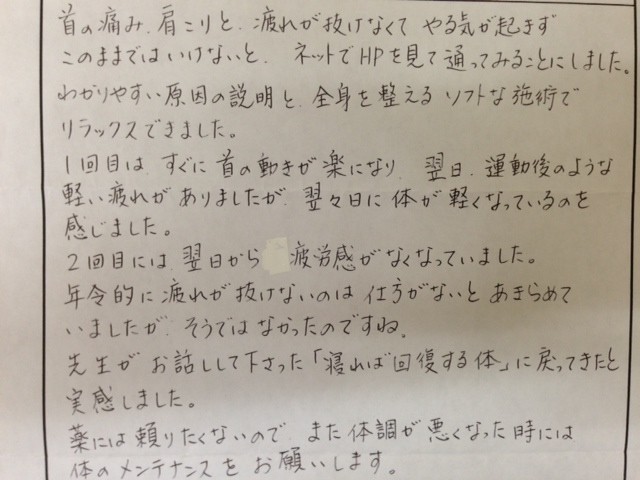 首の痛み、肩こりと、疲れが抜けなくて やる気が起きず
このままではいけないと、ネットでHPを見て通ってみることにしました。
わかりやすい原因の説明と、全身を整えるソフトな施術で
リラックスできました。
1回目は、すぐに首の動きが楽になり、翌日、運動後のような
軽い疲れがありましたが、翌々日に体が軽くなっているのを
感じました。
2回目には、翌日から 疲労感がなくなっていました。
年令的に疲れが抜けないのは仕方がないとあきらめて
いましたが、そうではなかったのですね。
先生がお話しして下さった「寝れば回復する体」に戻ってきたと
実感しました。
薬には頼りたくないので、また体調が悪くなった時には
体のメンテナンスをお願いします。